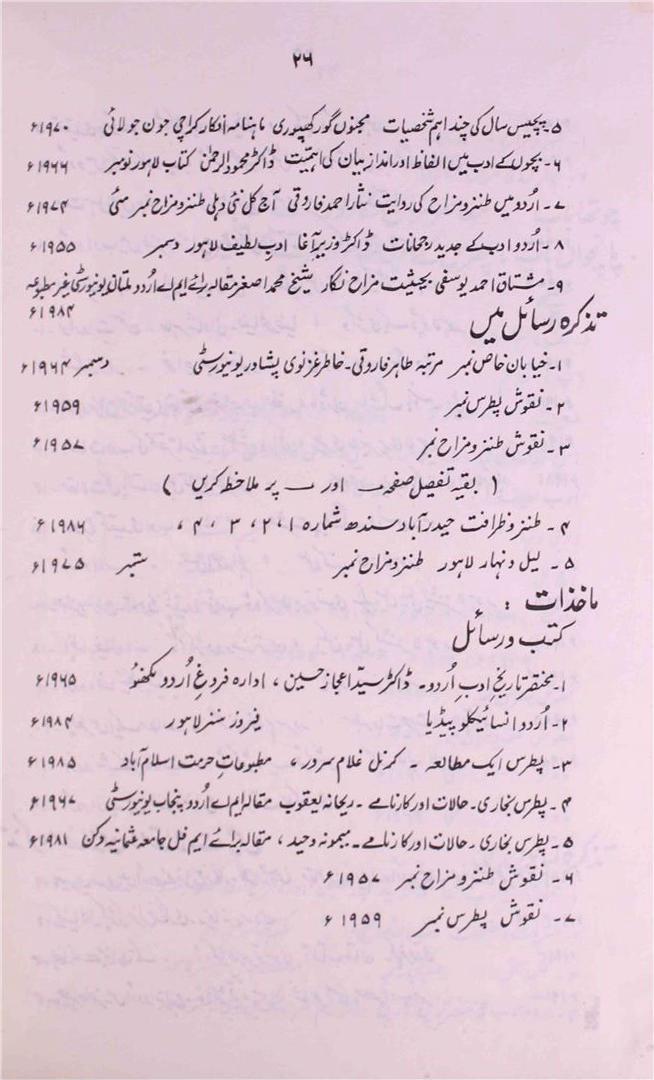 ۲۶
۵۔ پچیس سال کی چند اہم شخصیات مجنوں گورکھپوری ماہنامہ افکار کراچی جون جولائی ۱۹۷۰ء
۶۔ بچوں کے ادب میں الفاظ اور انداز بیان کی اہمیت ڈاکٹر محمود الرحمٰن کتاب لاہور نومبر ۱۹۶۶ء
۷۔ اُردو میں طنز و مزاح کی روایت نثار احمد فاروقی آج کل نئی دہلی طنز و مزاح نمبر مئی ۱۹۷۴ء
۸۔ اُردو ادب کے جدید رجحانات ڈاکٹر وزیر آغا ادبِ لطیف لاہور دسمبر ۱۹۵۵ء
۹۔ مشتاق احمد یوسفی بحیثیت مزاح نگار شیخ محمد اصغر مقالہ برائے ایم اے اُردو ملتان یونیورسٹی غیر مطبوعہ
۱۹۸۴ء
تذکرہ رسائل میں
۱۔ خیابان خاص نمبر مرتبہ طاہر فاروقی۔ خاطر غزنوی پشاور یونیورسٹی دسمبر ۱۹۶۴ء
۲۔ نقوش پطرس نمبر ۱۹۵۹ء
۳۔ نقوش طنز و مزاح نمبر ۱۹۵۷ء
( بقیہ تفصیل صفحہ ــ اور ــ پر ملاحظہ کریں )
۴۔ طنز و ظرافت حیدر آباد سندھ شمارہ ۱، ۲، ۳، ۴، ۱۹۸۶ء
۵۔ لیل و نہار لاہور طنز و مزاح نمبر ستمبر ۱۹۷۵ء
ماخذات :
کتب و رسائل
۱۔ مختصر تاریخِ ادبِ اُردو۔ ڈاکٹر سیّد اعجاز حسین، ادارہ فروغِ اُردو لکھنؤ ۱۹۶۵ء
۲۔ اُردو انسائیکلوپیڈیا فیروز سنز لاہور ۱۹۸۴ء
۳۔ پطرس ایک مطالعہ۔ کرنل غلام سرور، مطبوعاتِ حرمت اسلام آباد ۱۹۸۵ء
۴۔ پطرس بخاری۔ حالات اور کارنامے۔ ریحانہ یعقوب مقالہ ایم اے اُردو پنجاب یونیورسٹی ۱۹۶۷ء
۵۔ پطرس بخاری۔ حالات اور کارنامے۔ میمونہ وحید، مقالہ برائے ایم فل جامعہ عثمانیہ دکن ۱۹۸۱ء
۶۔ نقوش طنز و مزاح نمبر ۱۹۵۷ء
۷۔ نقوش پطرس نمبر ۱۹۵۹ء